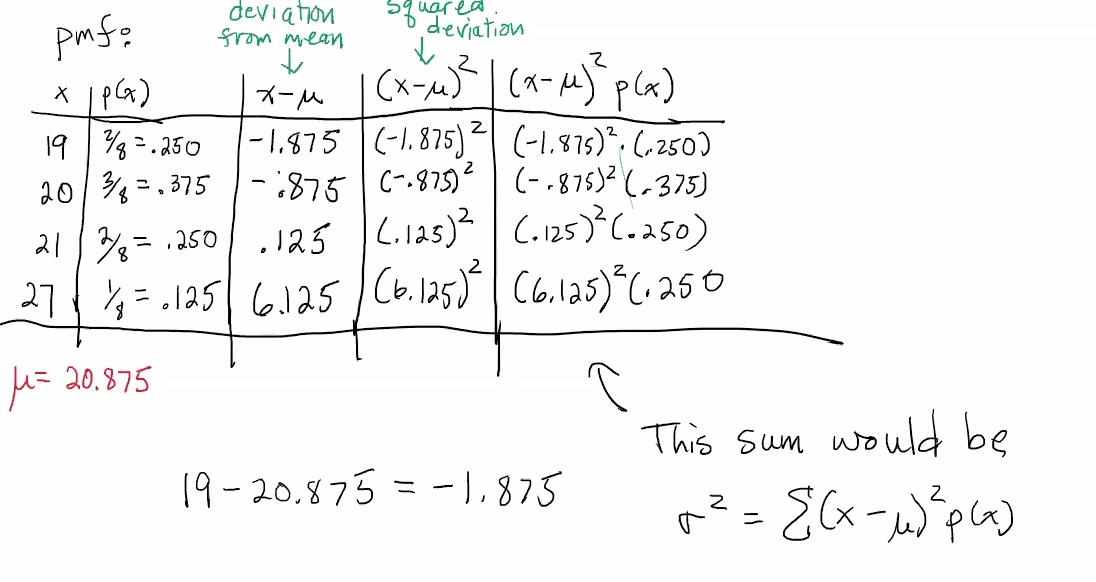 deviation from mean
squared deviation
pmf:
x | p(x) | x-μ | (x-μ)² | (x-μ)² p(x)
19 | 2/8 = .250 | -1.875 | (-1.875)² | (-1.875)²·(.250)
20 | 3/8 = .375 | -.875 | (-.875)² | (-.875)²(.375)
21 | 2/8 = .250 | .125 | (.125)² | (.125)²(.250)
27 | 1/8 = .125 | 6.125 | (6.125)² | (6.125)²(.250
μ = 20.875
This sum would be
19 - 20.875 = -1.875
σ² = Σ(x-μ)² p(x)